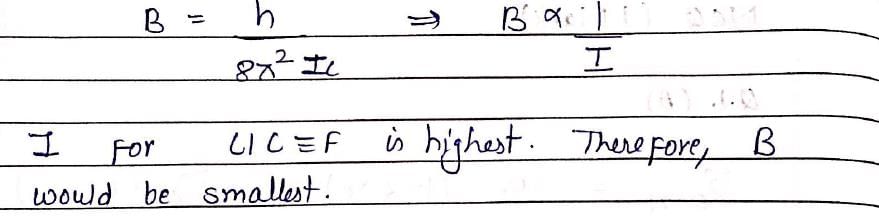 B = h / 8π² Ic ⇒ B ∝ 1 / I
I for Cl C ≡ F is highest. Therefore, B
would be smallest.